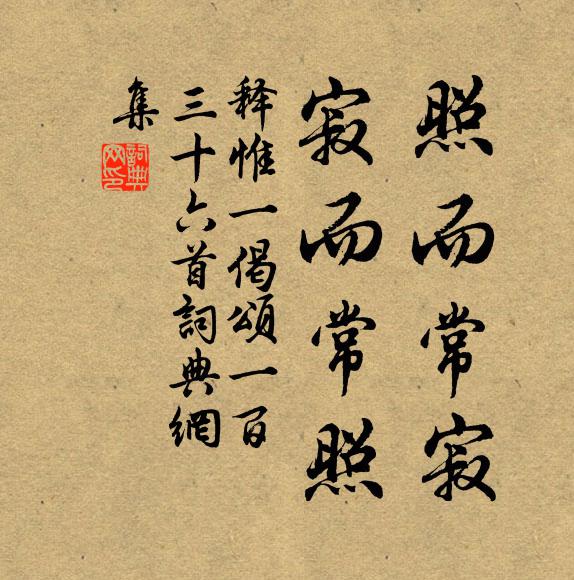 照而常寂
寂而常照
释惟一偈頌一百
三十六首詞典網
集
詞典
网印